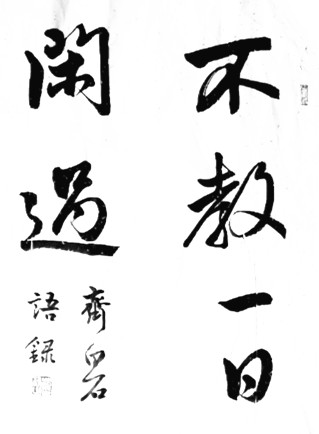 不教一日
閑過
齊白石
語錄